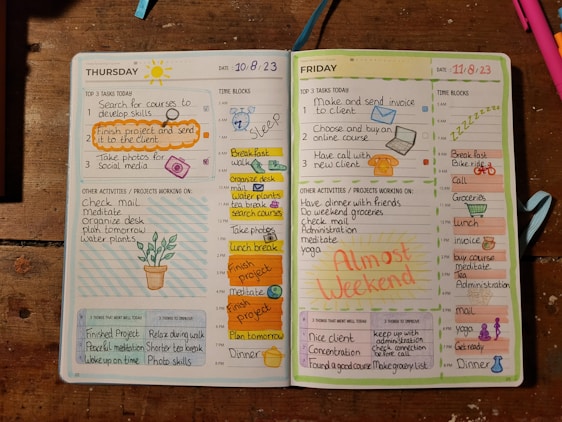 THURSDAY
DATE: 10/8/23
TOP 3 TASKS TODAY
TIME BLOCKS
1 Search for courses to
develop skills
2 Finish project and send
it to the client
3 Take photos for
social media
OTHER ACTIVITIES / PROJECTS WORKING ON:
Check mail
Meditate
Organize desk
plan tomorrow
Water plants
Sleep
Breakfast
walk
organize desk
mail
Water plants
tea break
search courses
Take photos
Lunch break
Finish
project
Meditate
Finish
project
Plan tomorrow
Dinner
3 THINGS THAT WENT WELL TODAY
3 THINGS TO IMPROVE
Finished Project
Relax during walk
Peaceful meditation
Shorter tea break
Woke up on time
Photo skills
FRIDAY
DATE: 11/8/23
TOP 3 TASKS TODAY
TIME BLOCKS
1 Make and send invoice
to client
2 Choose and buy an
online course
3 Have call with
new client
OTHER ACTIVITIES / PROJECTS WORKING ON:
Have dinner with friends
Do weekend groceries
check mail
Administration
meditate
yoga
Almost
Weekend
zzzzzzzz
Breakfast
Bike ride
Call
Groceries
Lunch
invoice
buy course
meditate
Tea
Administration
mail
yoga
Get ready
Dinner
3 THINGS THAT WENT WELL TODAY
3 THINGS TO IMPROVE
Nice client
keep up with
administration
Concentration
Check connection
before call
Found a good course
Make grocery list